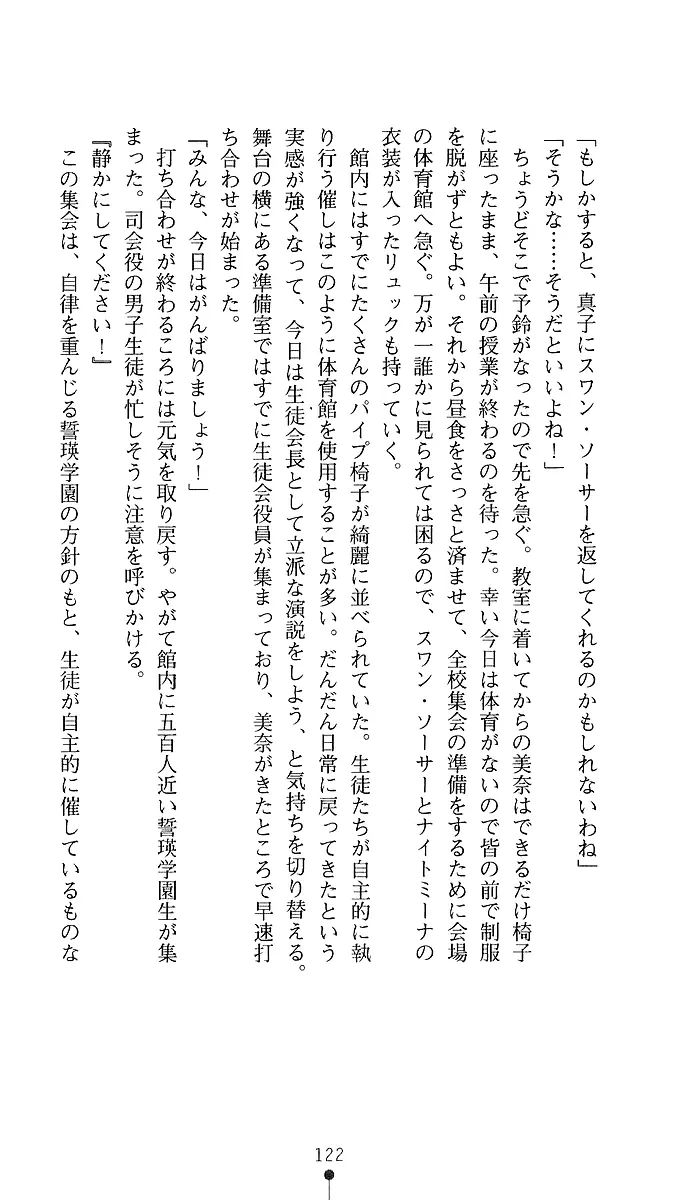 「もしかすると、真子にスワン・ソーサーを返してくれるのかもしれないわね」
「そうかな……そうだといいよね！」
　ちょうどそこで予鈴がなったので先を急ぐ。教室に着いてからの美奈はできるだけ椅子
に座ったまま、午前の授業が終わるのを待った。幸い今日は体育がないので皆の前で制服
を脱がずともよい。それから昼食をさっさと済ませて、全校集会の準備をするために会場
の体育館へ急ぐ。万が一誰かに見られては困るので、スワン・ソーサーとナイトミーナの
衣装が入ったリュックも持っていく。
　館内にはすでにたくさんのパイプ椅子が綺麗に並べられていた。生徒たちが自主的に執
り行う催しはこのように体育館を使用することが多い。だんだん日常に戻ってきたという
実感が強くなって、今日は生徒会長として立派な演説をしよう、と気持ちを切り替える。
舞台の横にある準備室ではすでに生徒会役員が集まっており、美奈がきたところで早速打
ち合わせが始まった。
「みんな、今日はがんばりましょう！」
　打ち合わせが終わるころには元気を取り戻す。やがて館内に五百人近い誓瑛学園生が集
まった。司会役の男子生徒が忙しそうに注意を呼びかける。
『静かにしてください！』
　この集会は、自律を重んじる誓瑛学園の方針のもと、生徒が自主的に催しているものな
122